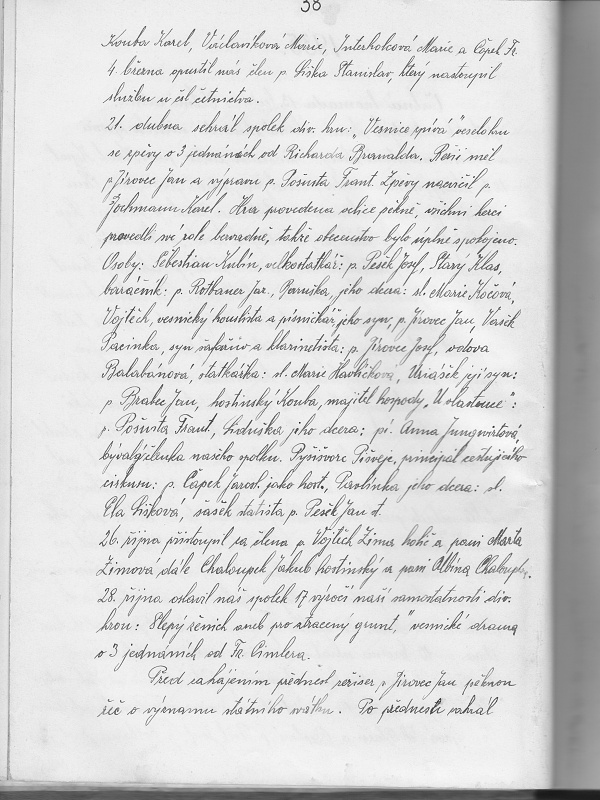 38
Kouba Karel, Václavíková Marie, Interholcová Marie a Čápek Fr.
4. března opustil nás člen p. Liška Stanislav, který nastoupil
službu u čsl četnictva.
21. dubna sehrál spolek div. hru: „Vesnice zpívá" veselohru
se zpěvy o 3 jednáních od Richarda Branalda. Režii měl
p. Jírovec Jan a výpravu p. Pošusta Frant. Zpěvy nacvičil p.
Zochmann Karel. Hra provedena velice pěkně, všichni herci
provedli své role bezvadně, takže obecenstvo bylo úplně spokojeno.
Osoby: Šebestian Kubín, velkostatkář: p. Pešek Josef, Starý Klas,
baráčník: p. Rotbauer Jar., Baruška, jeho dcera: sl. Marie Kočová,
Vojtěch, vesnický houslista a písničkář jeho syn, p. Jírovec Jan, Vašek
Pacinka, syn šafářův a klarinetista: p. Jírovec Josef, vdova
Balabánová, statkářka: sl. Marie Havlíčková, Uriášek její syn:
p. Brabec Jan, hostinský Kouba, majitel hospody „U vlastence":
p. Pošusta Frant., Liduška jeho dcera: pí. Anna Jungwirtová,
bývalá členka našeho spolku. principál cestujícího
cirkusu: p. Čapek Jarosl. jako host, Pavlínka jeho dcera: sl.
Ela Lišková, šašek statista p. Pešek Jan st.
26. října přistoupil za člena p. Vojtěch Zima holič a paní Marta
Zimová dále Chaloupek Jakub hostinský a paní Albína Chaloupk.
28. října oslavil náš spolek 17 výročí naší samostatnosti div.
hrou: Slepý ženich aneb pro ztracený grunt," vesnické drama
o 3 jednáních od Fr. Cimlera.
Před zahájením přednesl režiser p. Jírovec Jan pěknou
řeč o významu státního svátku. Po přednesu zahrál